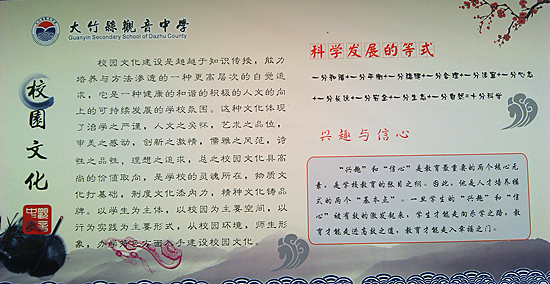 大竹縣觀音中學
Guanyin Secondary School of Dazhu County
校园文化
觀音
中學
校园文化建设是超越于知识传授，能力
培养与方法渗透的一种更高层次的自觉追
求，它是一种健康的和谐的积极的人文的向
上的可持续发展的学校氛围。这种文化体现
了治学之严谨，人文之关怀，艺术之品位，
审美之感动，创新之激情，儒雅之风范，诗
性之品性，理想之追求，总之校园文化具高
尚的价值取向，是学校的灵魂所在，物质文
化打基础，制度文化添内力，精神文化铸品
牌。以学生为主体，以校园为主要空间，以
行为实践为主要形式，从校园环境，师生形
象，办学特色方面入手建设校园文化。
科学发展的等式
一分和谐+一分平衡+一分稳健+一分合理+一分法宝+一分心态
+一分友谊+一分安全+一分生态+一分自然=十分科学
兴趣与信心
“兴趣”和“信心”是教育最重要的两个核心元
素，是学校教育的纲目之纲。因此，他是人才培养模
式的两个“基本点”。一旦学生的“兴趣”和“信
心”被有效的激发起来，学生才能走向乐学之路，教
育才能走近高效之道，教育才能走入幸福之门。